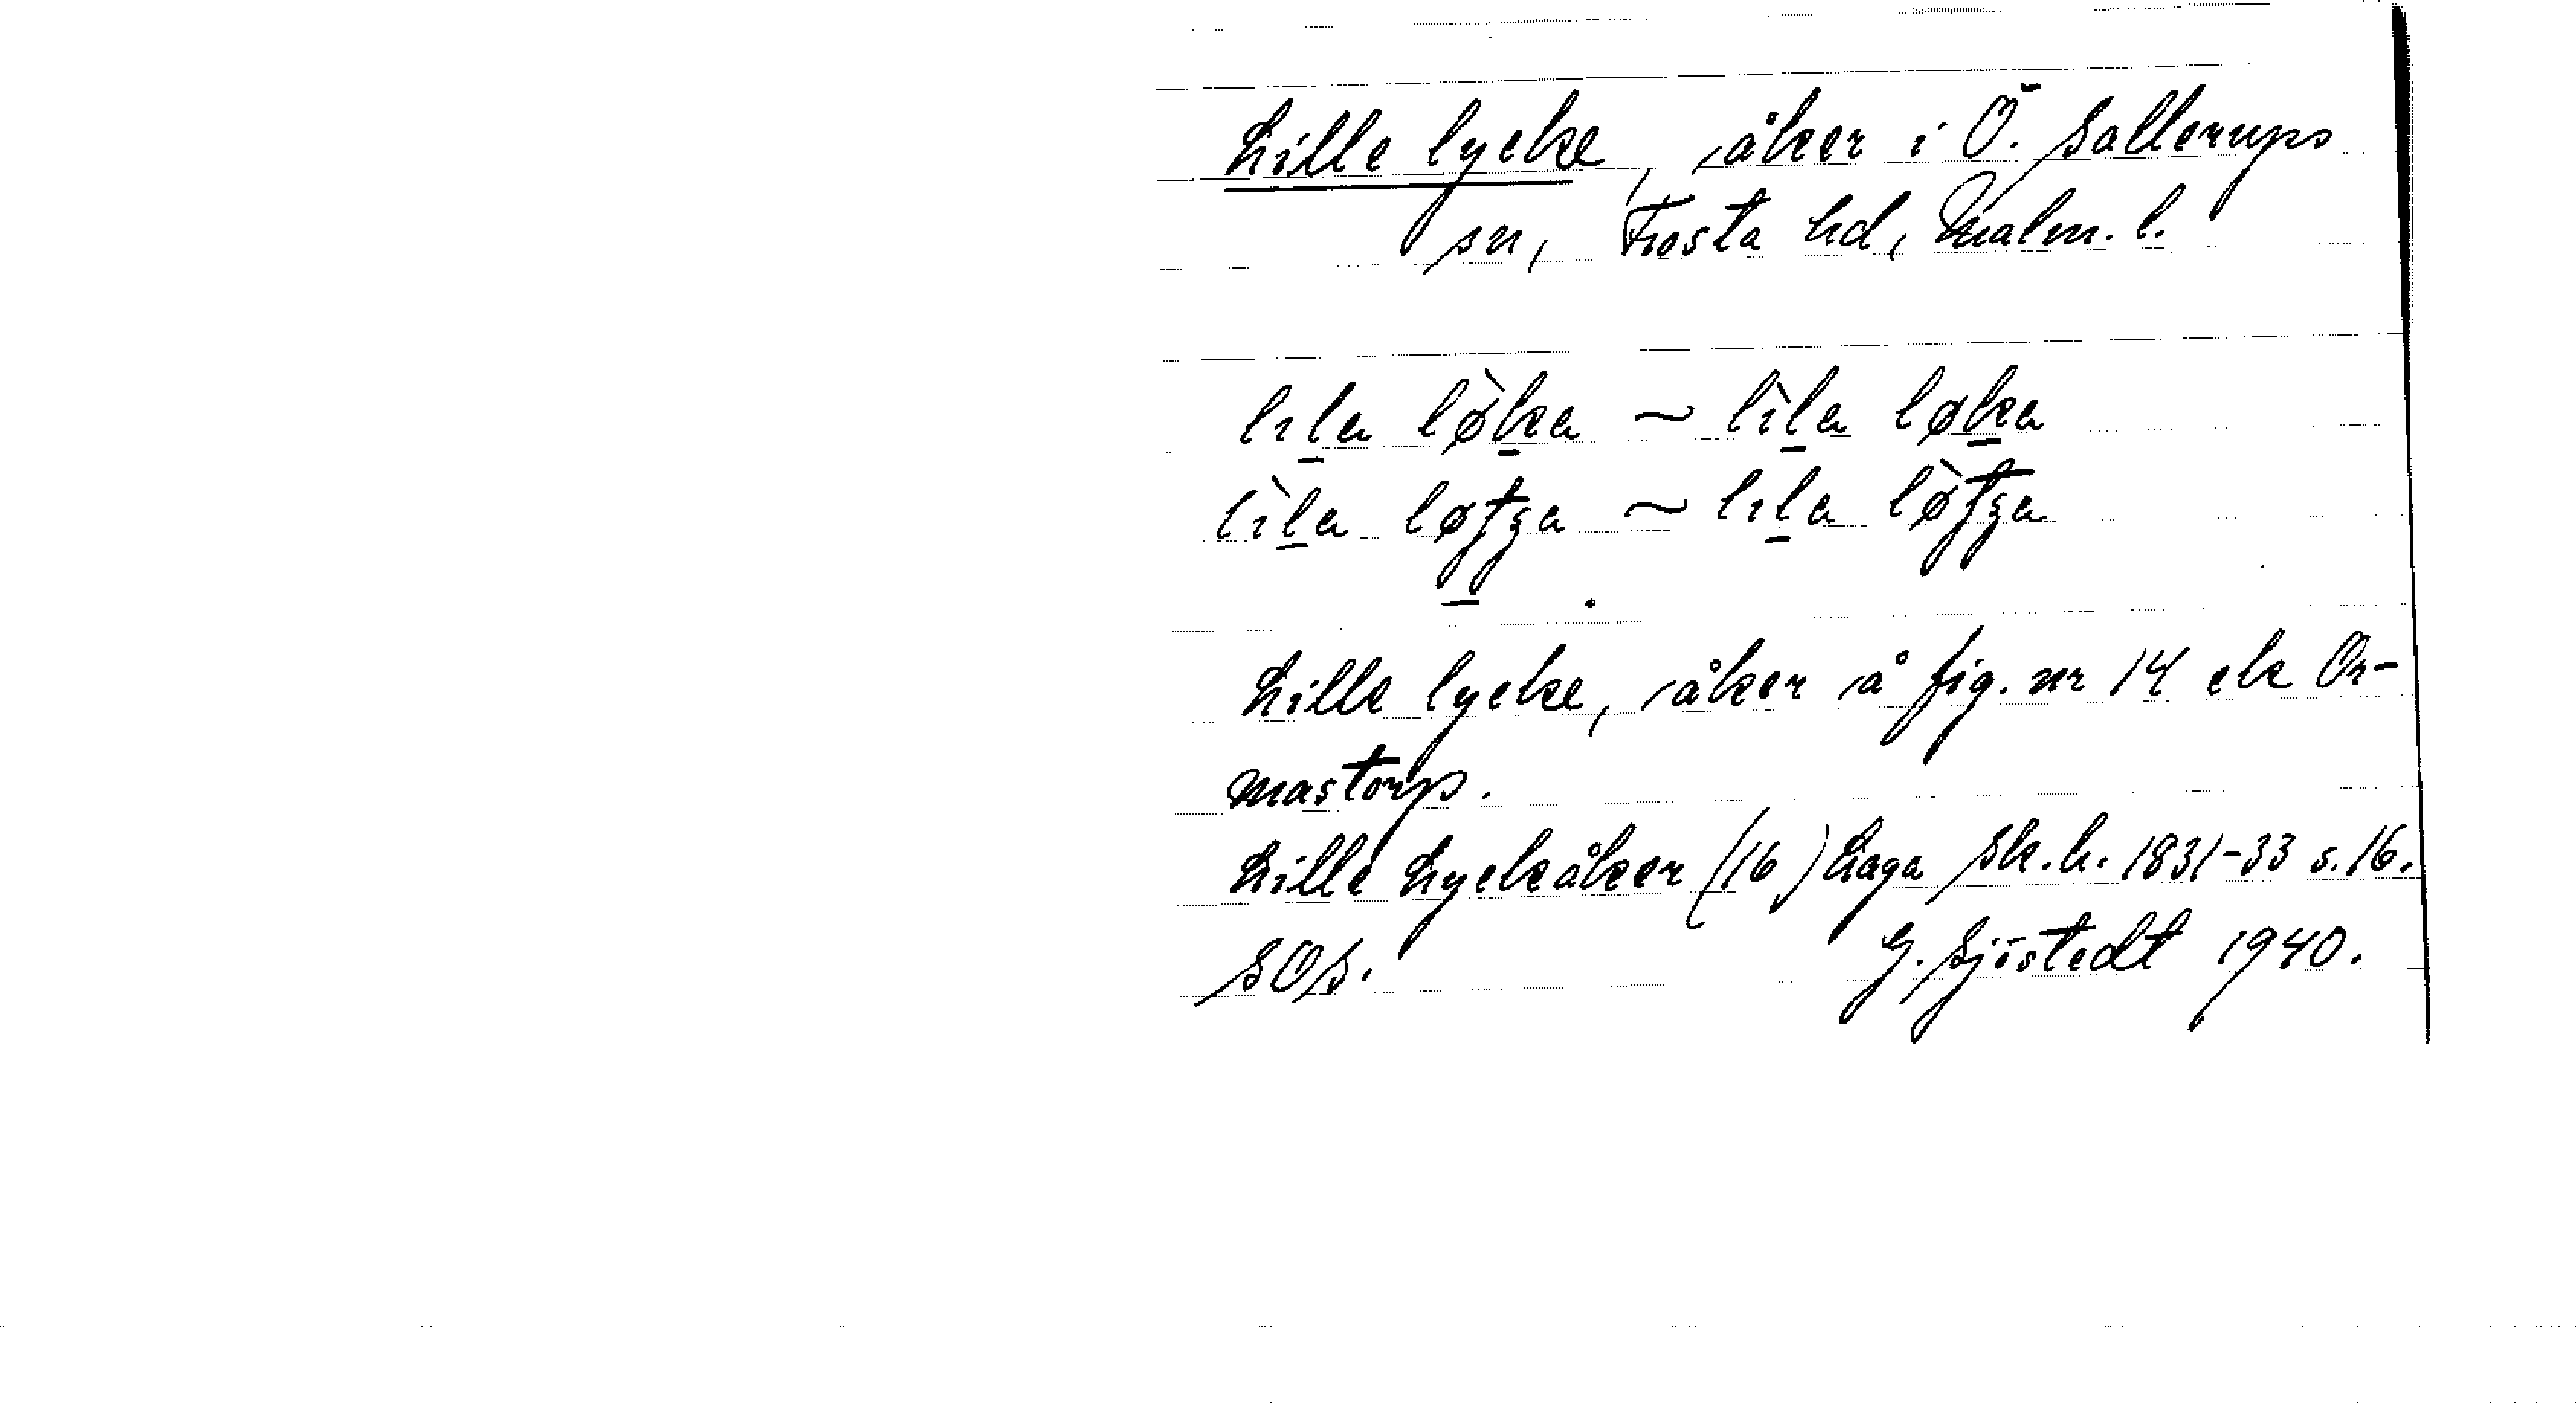 Lille lycke, åker i Ö. Sallerups
sn, Frosta hd, Malm. l.
lıla lø̀ka ~ lı̀la løka
lı̀la løtʒa ~ lıla lø̀tʒa
Lille lycke, åker å fig. nr 14 ek Or-
mastorp.
Lille Lyckeåker (16) Laga Sk.h. 1831-33 s. 16.
SOS. G. Sjöstedt 1940.